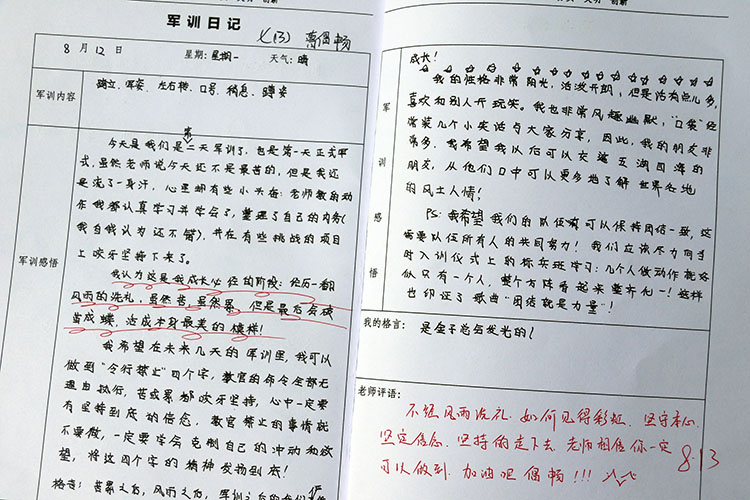 军训日记
七(13) 葛偶畅
8月12日 星期:星期一 天气:晴
军训内容
确立、蹲姿、左右转、口号、稍息、蹲姿
军训感悟
今天是我们第二天军训了,也是第一天正式
式。虽然老师说今天还不是最苦的,但是我还
是流了一身汗,心里却有些小兴奋:老师教的动
作我都认真学习并学会了,整理了自己的内务(
我自我认为还不错),并在有些挑战的项目
上咬牙坚持下来了。
我认为这是我成长必经的阶段:经历一番
风雨的洗礼,虽然苦,虽然累,但是最后会破
茧成蝶,活成本身最美的模样!
我希望在未来几天的军训里,我可以
做到“令行禁止”四个字,教官的命令全部无
理由执行,苦或累都咬牙坚持,心中一定要
有坚持到底的信念,教官禁止的事情就
不要做,一定要学会克制自己的冲动和欲
望,将这四个字的精神发扬到底!
格言:苦累之后,风雨之后,军训之后的我们
军训感悟
成长!
☆☆☆☆☆☆☆☆☆☆☆☆☆☆☆☆
我的性格非常阳光,活泼开朗,但是话有点儿多,
喜欢和别人开玩笑。我也非常风趣幽默,“口袋”经
常装几个小笑话与大家分享,因此,我的朋友非
常多。我希望我以后可以交遍五湖四海的
朋友,从他们口中可以更多地了解世界各地
的风土人情!
PS:我希望我们的队伍可以保持团结一致,这
需要队伍所有人的共同努力!我们应该尽力向当
时入训仪式上的标兵班学习:几个人做动作就好
似只有一个人,整个方阵看起来整齐化一!这样
也印证了歌曲“团结就是力量”!
我的格言: 是金子总会发光的!
老师评语:
不经风雨洗礼,如何见得彩虹,坚守本心,
坚定信念,坚持的走下去,老师相信你一定
可以做到,加油吧偶畅!!!
8.13